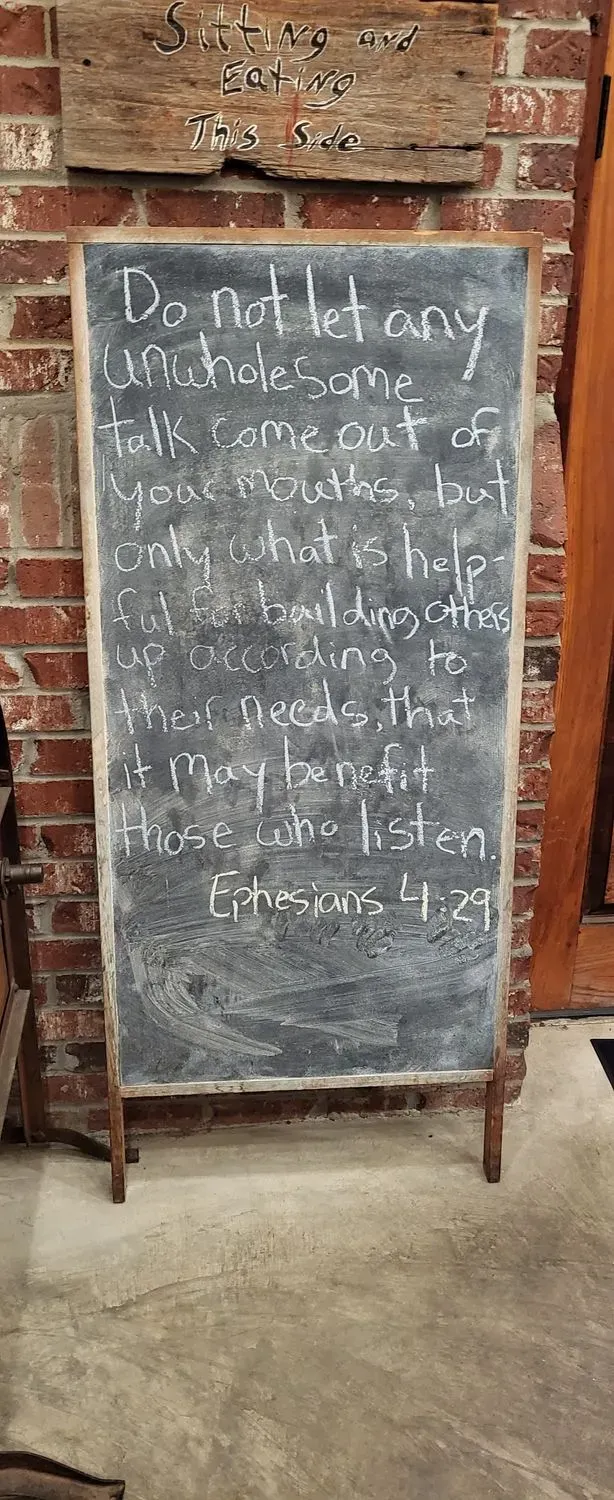 Sitting and
Eating
This Side
Do not let any
unwholesome
talk come out of
your mouths, but
only what is help-
ful for building others
up according to
their needs, that
it may benefit
those who listen.
Ephesians 4:29